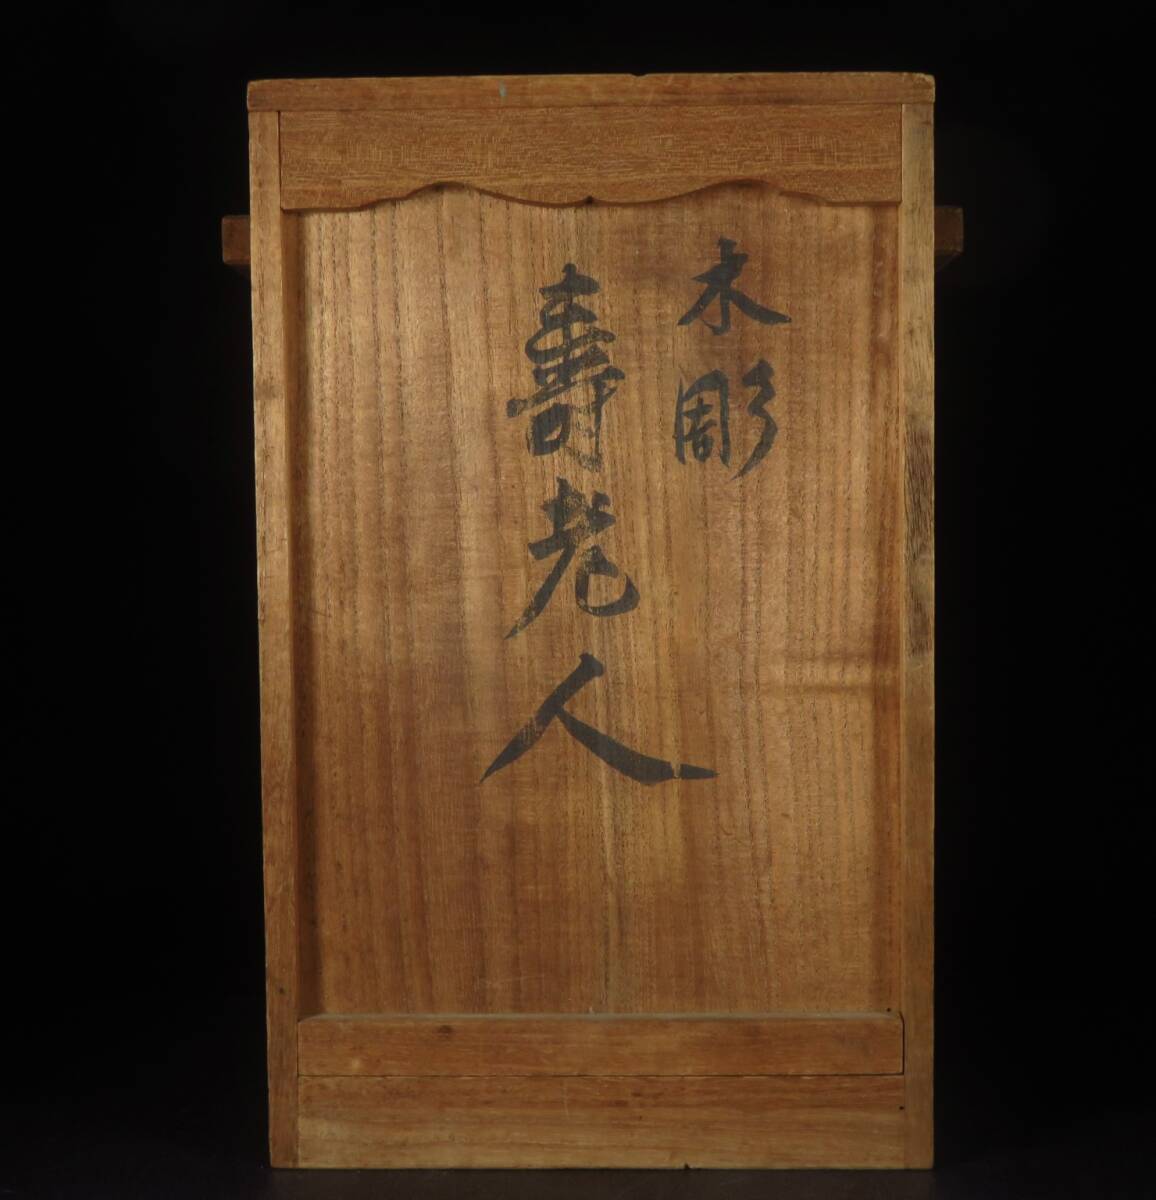 木彫
壽老人